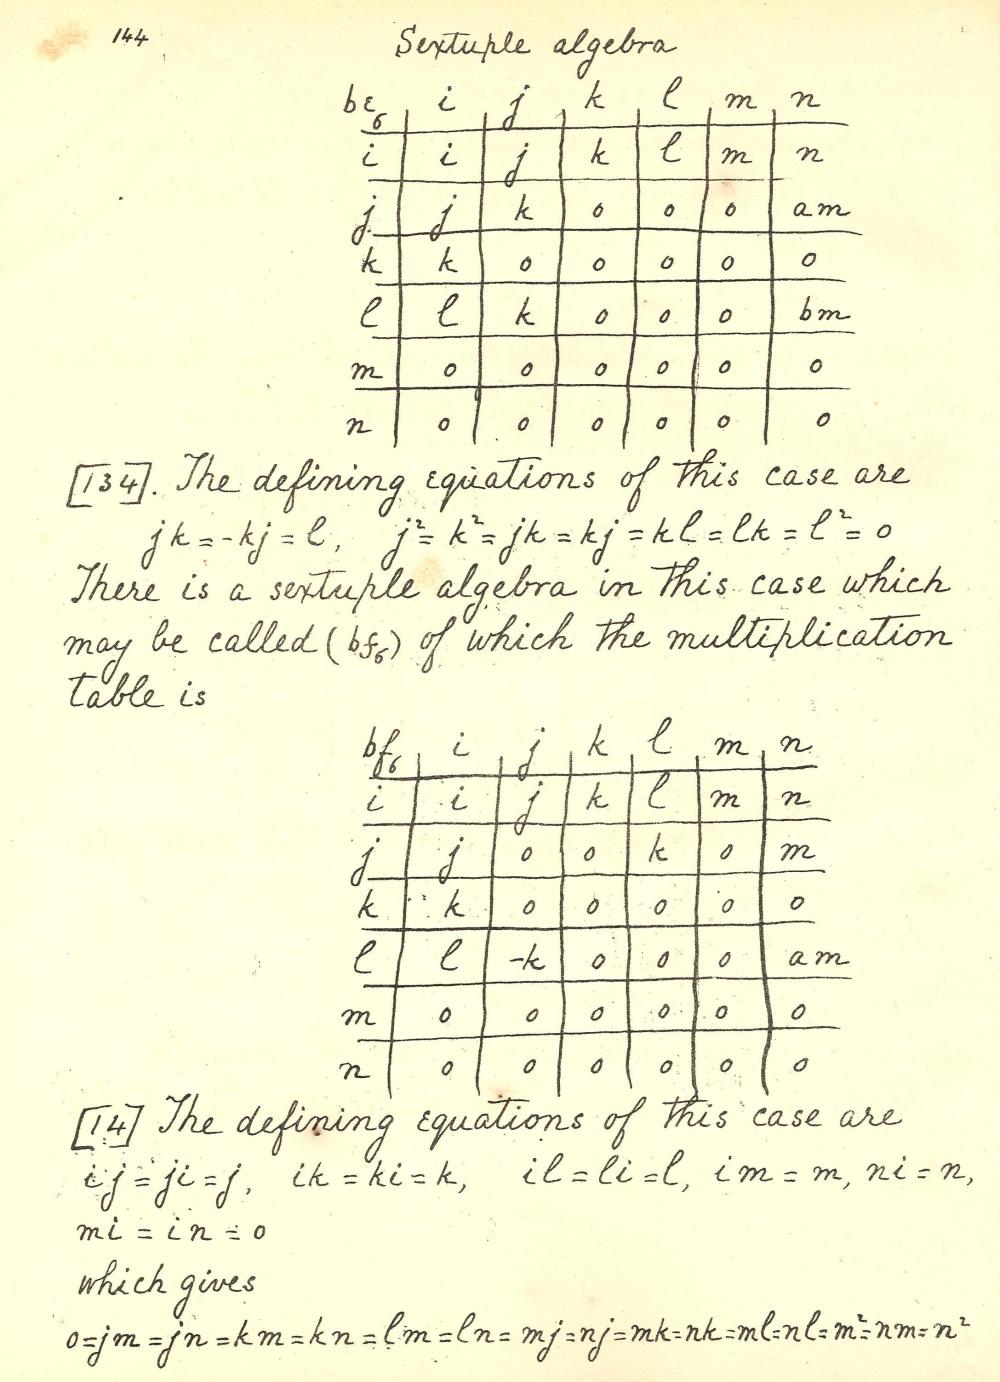 144
Sextuple algebra
bε₆ i j k l m n
i i j k l m n
j j k o o o am
k k o o o o o
l l k o o o bm
m o o o o o o
n o o o o o o
[134]. The defining equations of this case are
jk = -kj = l, j² = k² = jk = kj = kl = lk = l² = o
There is a sextuple algebra in this case which
may be called (bf₆) of which the multiplication
table is
bf₆ i j k l m n
i i j k l m n
j j o o k o m
k k o o o o o
l l -k o o o am
m o o o o o o
n o o o o o o
[14] The defining equations of this case are
ij = ji = j, ik = ki = k, il = li = l, im = m, ni = n,
mi = in = o
which gives
o=jm=jn=km=kn=lm=ln=mj=nj=mk=nk=ml=nl=m²=nm=n²